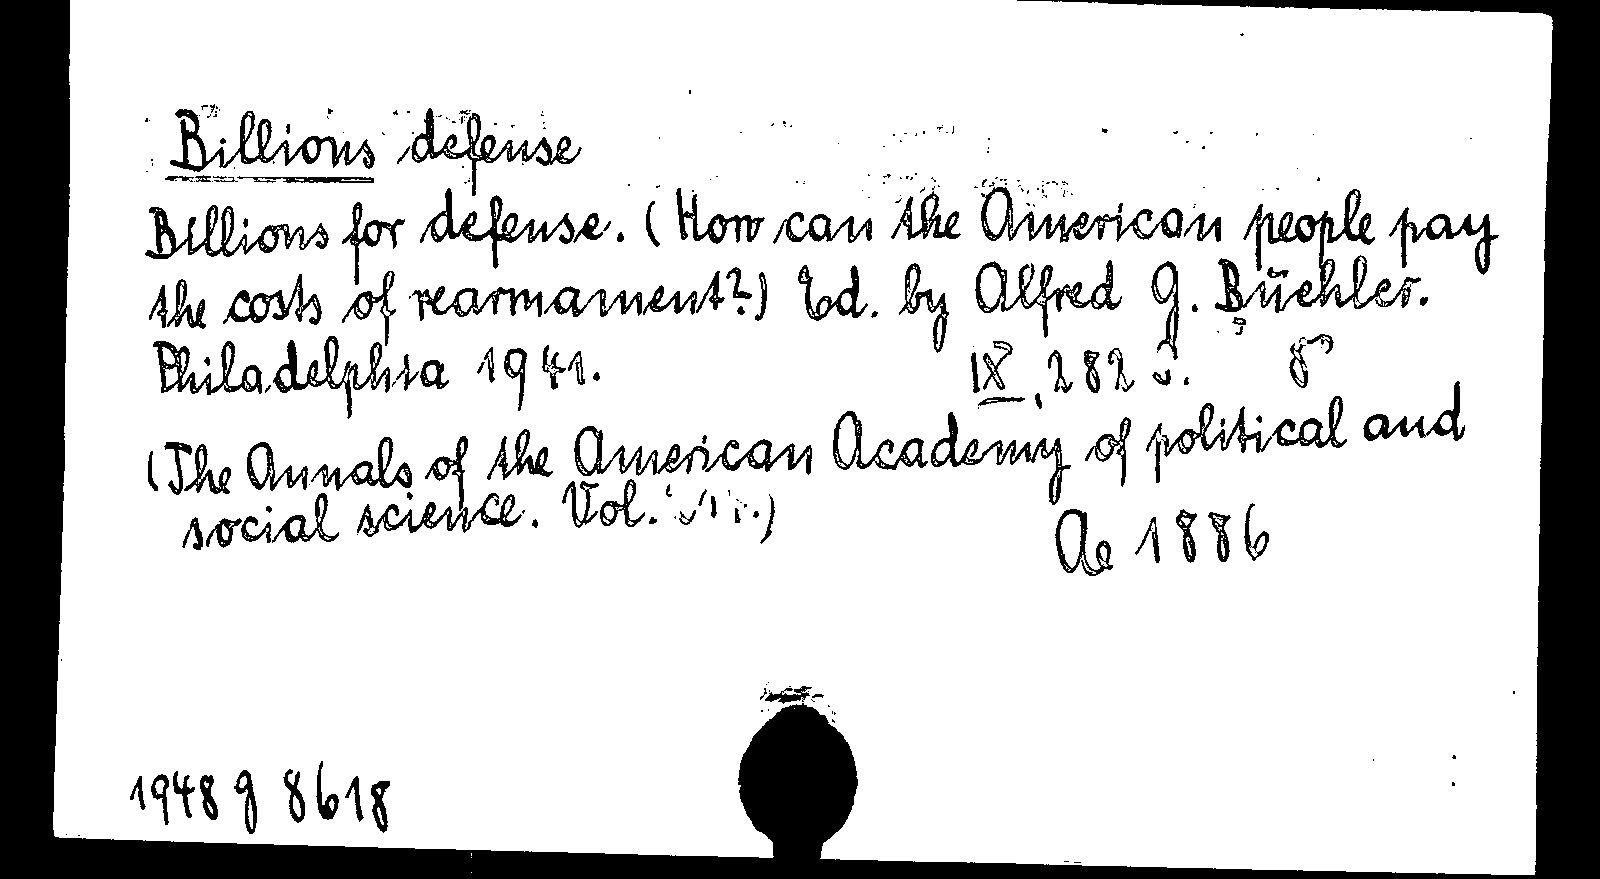 Billions defense
Billions for defense. (How can the American people pay
the costs of rearmament?) Ed. by Alfred G. Büehler.
Philadelphia 1941. IX, 282 S. 8°
(The Annals of the American Academy of political and
social science. Vol.)
Ae 1886
1948 g 8618